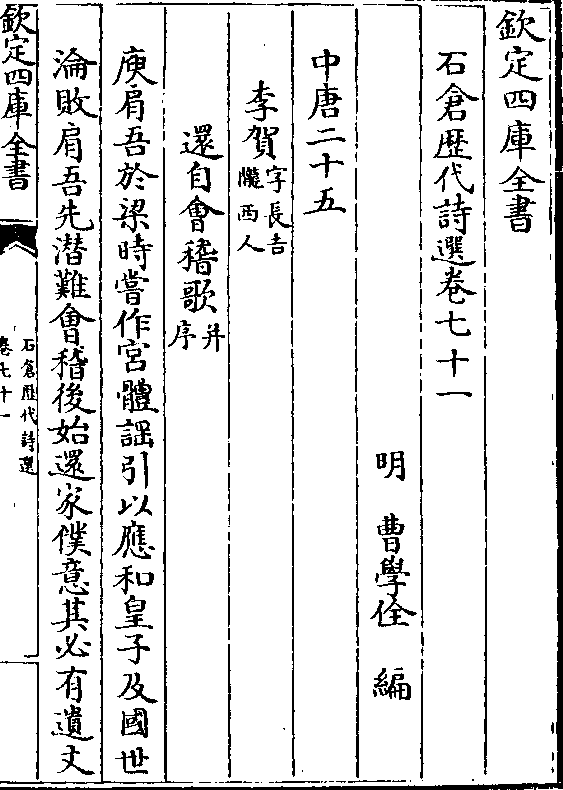 欽定四庫全書
石倉歷代詩選卷七十一
明　曹學佺　編
中唐二十五
李賀字長吉隴西人
還自會稽歌并序
庾肩吾於梁時嘗作宮體謡引以應和皇子及國世
淪敗肩吾先潜難會稽後始還家僕意其必有遺文
欽定四庫全書
石倉歷代詩選
卷七十一